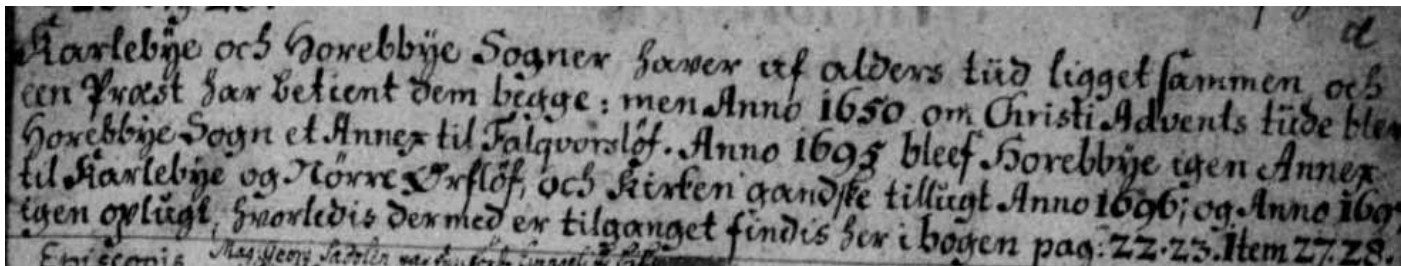 d
Karlebÿe och Horebbÿe Sogner haver af alders tüd ligget sammen och
een Præst har betient dem begge: men Anno 1650 om Christi Advents tüde blev
Horebbÿe Sogn et Annex til Falqvorslöf. Anno 1695 bleef Horebbÿe igen Annex
til Karlebÿe og Nörre Ørslöf, och Kirken gandske tillugt Anno 1696; og Anno 169
igen oplugt, hvorledis dermed er tilganget findis her i bogen pag: 22.23. Item 27.28.
Episcopis Mag. Georg Sadolin